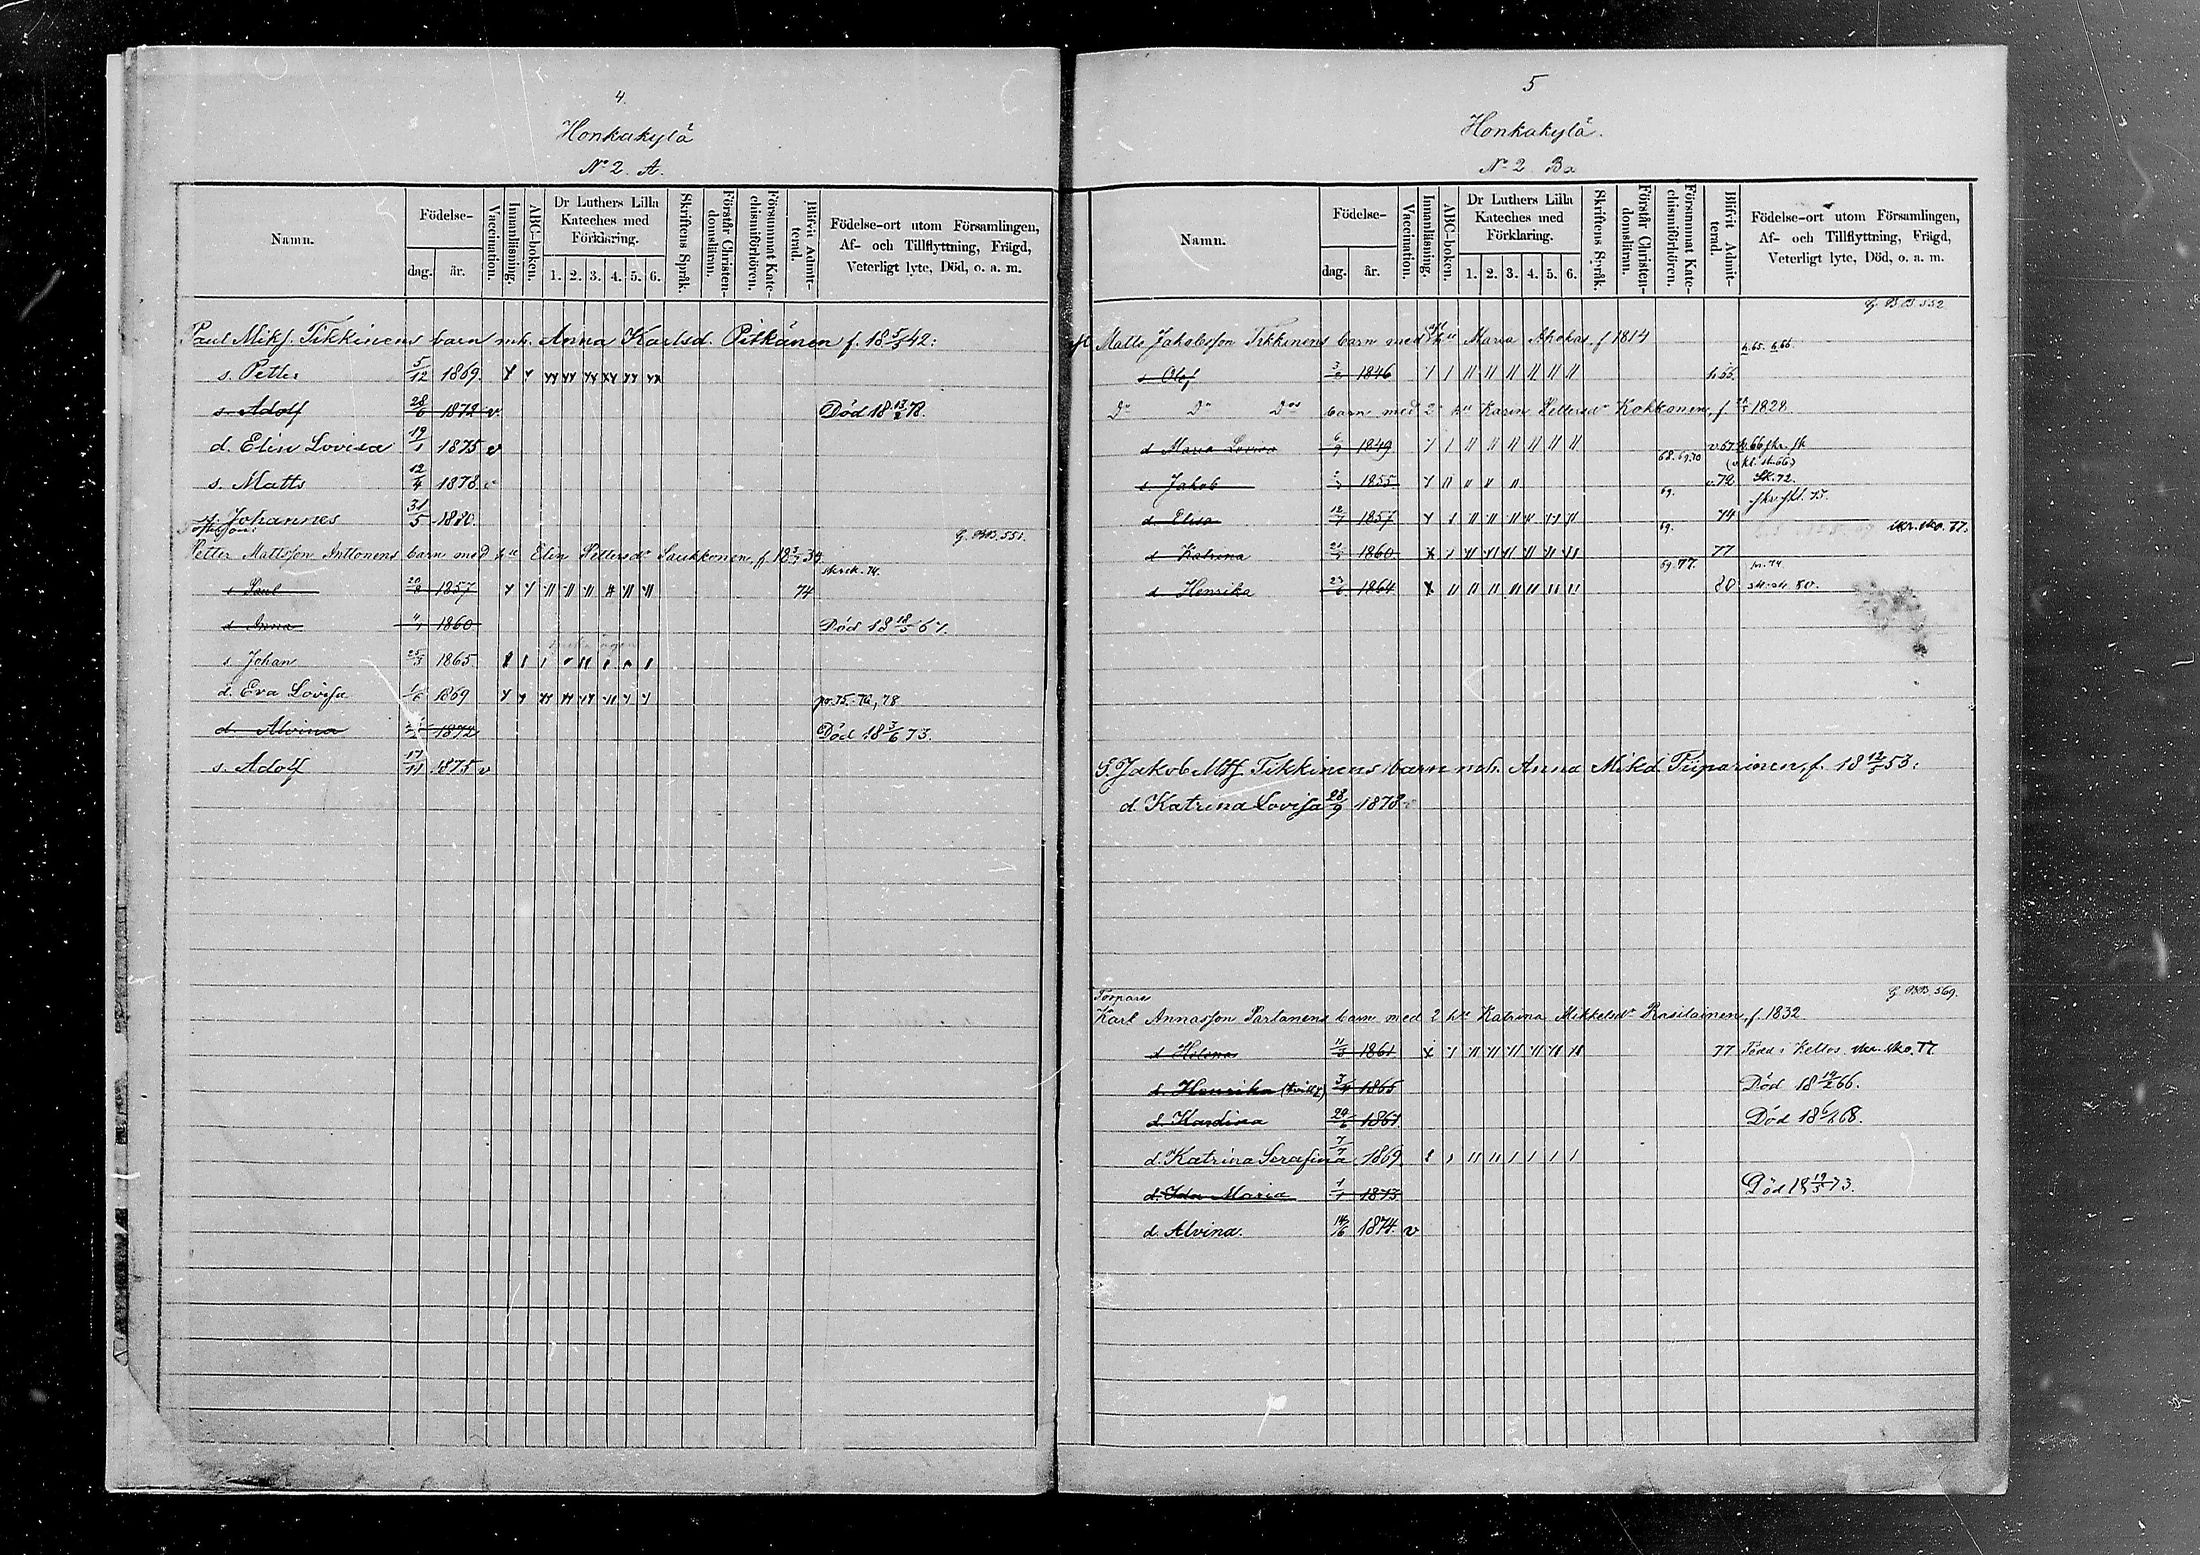 4.
Honkakylä
No 2. A.
Namn.
Födelse-
dag.
år.
Vaccination.
Innanläsning.
ABC-boken.
Dr Luthers Lilla
Kateches med
Förklaring.
1. 2. 3. 4. 5. 6.
Skriftens Språk.
Förstår Christen-
domsläran.
Försummat Kate-
chismiförhören.
Blifvit Admit-
terad.
Födelse-ort utom Församlingen,
Af- och Tillflyttning, Frägd,
Veterligt lyte, Död, o. a. m.
Paul Miks. Tikkinens barn mh. Anna Karlsd. Pitkänen f. 18 5/5 42:
s. Petter 5/12 1869.
s. Adolf 28/6 1872 v Död 18 13/2 78.
d. Elin Lovisa 19/1 1875 v
s. Matts 12/4 1878 v
s. Johannes 31/5 1880.
G. BB. 551.
Petter Mattsson Anttonens barn med hu Elin Pettersdr Saukkonen, f. 18
s Paul 20/8 1857 74
d Anna 1860 Död 18 18/5 67.
s. Johan 25/3 1865
d. Eva Lovisa 1/6 1869 pr. 75. 76, 78
d. Alvina 1872 Död 18 3/6 73.
s. Adolf 17/11 1875 v
5
Honkakylä.
No 2 Ba
Namn.
Födelse-
dag.
år.
Vaccination.
Innanläsning.
ABC-boken.
Dr Luthers Lilla
Kateches med
Förklaring.
1. 2. 3. 4. 5. 6.
Skriftens Språk.
Förstår Christen-
domsläran.
Försummat Kate-
chismiförhören.
Blifvit Admit-
terad.
Födelse-ort utom Församlingen,
Af- och Tillflyttning, Frägd,
Veterligt lyte, Död, o. a. m.
G. B.B. 552
Matts Jakobsson Tikkinens barn med hu Maria f 1814
h. 65. h 66.
s Olof 1846
Do Do Dos barn med 2a hu Karin Pettersdr Kokkonen, f. 1828
d Maria Lovisa 6/9 1849
68. 69. 70
s Jakob 1855 v. 72 Sk. 72.
69.
d Elisa 12/7 1857 74
69. skr. sko. 77.
d Katrina 21/7 1860 77
69. 77.
d Henrika 23/6 1864 80
S. Jakob Mts. Tikkinens barn mh. Anna Mikd. Piiparinen, f. 18 12/5 53:
d. Katrina Lovisa 28/9 1878
Torpare G. BB. 569.
Karl Annasson Partanens barn med 2 hu Katrina Mikkelsdr Rasilainen, f. 1832
d Helena 11/3 1861 77 Född i Keltos. skr. sko. 77.
d. Henrika (tvill.) 3/4 1865 Död 18 19/2 66.
d. Kardina 29/6 1867 Död 18 6/4 68.
d. Katrina Serafina 7/7 1869
d. Ida Maria 1/1 1873 Död 18 19/3 73.
d. Alvina. 14/6 1874 v